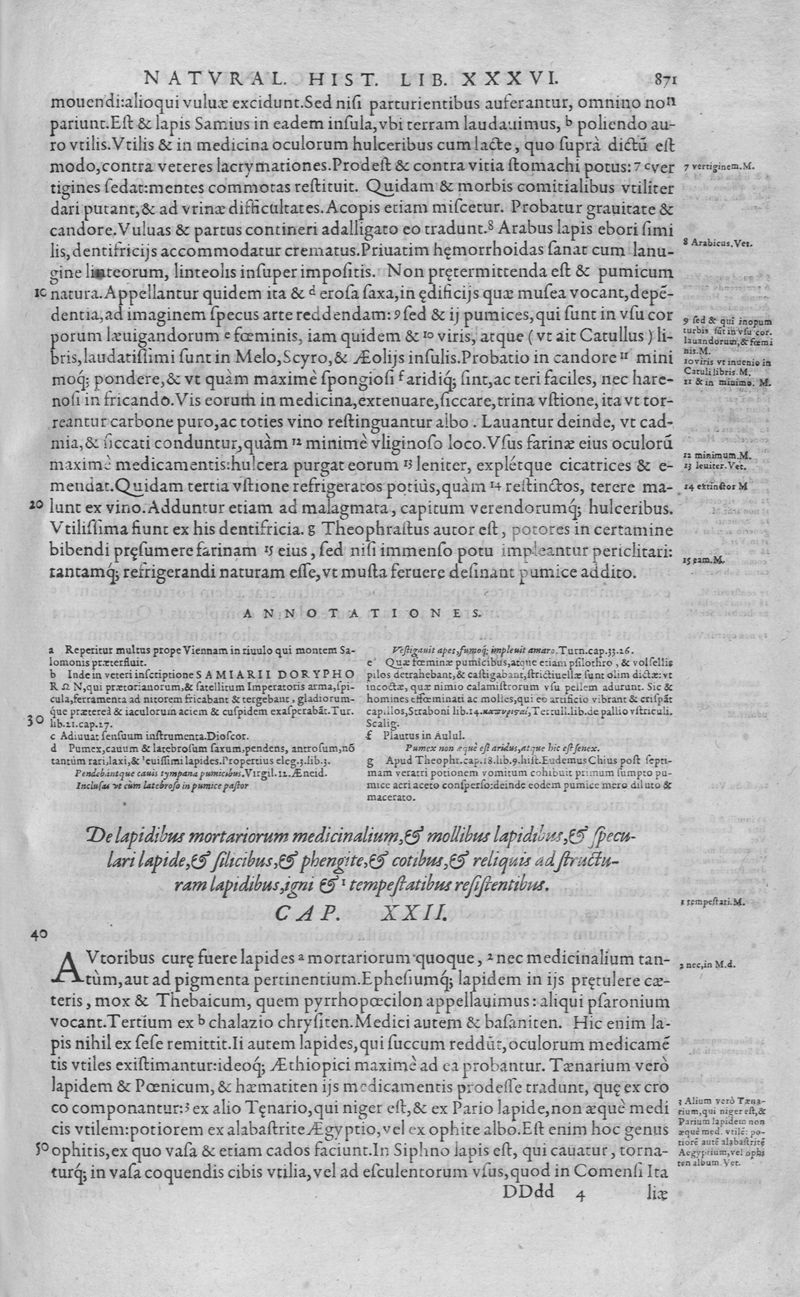 NATVRAL. HIST. LIB. XXXVI. 871
mouendi:alioqui vuluæ excidunt.Sed nisi parturientibus auferantur, omnino non
pariunt.Est & lapis Samius in eadem insula,vbi terram laudauimus, b poliendo au-
ro vtilis.Vtilis & in medicina oculorum hulceribus cum lacte, quo suprà dictũ est
modo,contra veteres lacrymationes.Prodest & contra vitia stomachi potus: 7 c ver
tigines sedat:mentes commotas restituit. Quidam & morbis comitialibus vtiliter
dari putant,& ad vrinæ difficultates.Acopis etiam miscetur. Probatur grauitate &
candore.Vuluas & partus contineri adalligato eo tradunt.8 Arabus lapis ebori simi
lis,dentifricijs accommodatur crematus.Priuatim hęmorrhoidas sanat cum lanu-
gine linteorum, linteolis insuper impositis. Non prętermittenda est & pumicum
10 natura.Appellantur quidem ita & d erosa saxa,in ędificijs quæ musea vocant,depẽ-
dentia,ad imaginem specus arte reddendam: 9 sed & ij pumices,qui sunt in vsu cor
porum læuigandorum e fœminis, iam quidem & 10 viris, atque ( vt ait Catullus ) li-
bris,laudatissimi sunt in Melo,Scyro,& Æolijs insulis.Probatio in candore 11 mini
moq; pondere,& vt quàm maximè spongiosi f aridiq; sint,ac teri faciles, nec hare-
nosi in fricando.Vis eorum in medicina,extenuare,siccare,trina vstione, ita vt tor-
reantur carbone puro,ac toties vino restinguantur albo . Lauantur deinde, vt cad-
mia,& siccati conduntur,quàm 12 minimè vliginoso loco.Vsus farinæ eius oculorũ
maximè medicamentis:hulcera purgat eorum 13 leniter, explétque cicatrices & e-
mendat.Quidam tertia vstione refrigeratos potiùs,quàm 14 restinctos, terere ma-
20 lunt ex vino.Adduntur etiam ad malagmata, capitum verendorumq; hulceribus.
Vtilissima fiunt ex his dentifricia. g Theophrastus autor est, potores in certamine
bibendi pręsumere farinam 15 eius, sed nisi immenso potu impleantur periclitari:
tantamq; refrigerandi naturam esse,vt musta feruere desinant pumice addito.
7 vertiginem.M.
8 Arabicus.Vet.
9 sed & qui inopum
turbis sũt in vsu cor.
lauandorum,& fœmi
nis.M.
10 viris vt inuenio in
Catuli libris. M.
11 & in minimo. M.
12 minimum.M.
13 leuiter.Vet.
14 extinctor M
15 eam.M.
ANNOTATIONES.
a Reperitur multus prope Viennam in riuulo qui montem Sa-
lomonis præterfluit.
b Inde in veteri inscriptione SAMIARII DORYPHO
RΩN,qui prætorianorum,& satellitum Imperatoris arma,spi-
cula,ferramenta ad nitorem fricabant & tergebant, gladiorum-
que prætereà & iaculorum aciem & cuspidem exasperabãt.Tur.
30 lib.21.cap.17.
c Adiuuat sensuum instrumenta.Dioscor.
d Pumex,cauum & latebrosum saxum,pendens, antrosum,nõ
tantùm rari,laxi,& leuissimi lapides.Propertius eleg.3.lib.3.
Pendebantque cauis tympana pumicibus.Virgil.12.Æneid.
Inclusas vt cùm latebroso in pumice pastor
Vestigauit apes,fumoq; impleuit amaro.Turn.cap.33.26.
e Quæ fœminæ pumicibus,atque etiam psilothro, & volsellis
pilos detrahebant,& castigabant,strictiuellæ sunt olim dictæ:vt
incoctæ, quæ nimio calamistrorum vsu pellem adurunt. Sic &
homines effœminati ac molles,qui eo artificio vibrant & crispãt
capillos,Straboni lib.14. Tertull.lib.de pallio vstriculi.
Scalig.
f Plautus in Aulul.
Pumex non æquè est aridus,atque hic est senex.
g Apud Theophr.cap.18.lib.9.hist.Eudemus Chius post septi-
mam veratri potionem vomitum cohibuit primum sumpto pu-
mice acri aceto consperso:deinde eodem pumice mero diluto &
macerato.
De lapidibus mortariorum medicinalium,& mollibus lapidibus,& specu-
lari lapide,& silicibus,& phengite,& cotibus,& reliquis ad structu-
ram lapidibus,igni & 1 tempestatibus resistentibus.
1 tempestati.M.
CAP. XXII.
40
AVtoribus curę fuere lapides a mortariorum quoque, 2 nec medicinalium tan-
tùm,aut ad pigmenta pertinentium.Ephesiumq; lapidem in ijs prętulere cæ-
teris, mox & Thebaicum, quem pyrrhopœcilon appellauimus: aliqui psaronium
vocant.Tertium ex b chalazio chrysiten.Medici autem & basaniten. Hic enim la-
pis nihil ex sese remittit.Ii autem lapides,qui succum reddũt,oculorum medicamẽ
tis vtiles existimantur:ideoq; Æthiopici maximè ad ea probantur. Tænarium verò
lapidem & Pœnicum,& hæmatiten ijs medicamentis prodesse tradunt, quę ex cro
co componantur: 3 ex alio Tęnario,qui niger est,& ex Pario lapide,non æquè medi
cis vtilem:potiorem ex alabastrite Ægyptio,vel ex ophite albo.Est enim hoc genus
50 ophitis,ex quo vasa & etiam cados faciunt.In Siphno lapis est, qui cauatur, torna-
turq; in vasa coquendis cibis vtilia,vel ad esculentorum vsus,quod in Comensi Ita
2 nec,in M.d.
3 Alium verò Tæna-
rium,qui niger est,&
Parium lapidem non
æquè med. vtilẽ: po-
tiorẽ autẽ alabastritẽ
Aegyptium,vel ophi
ten album Vet.
DDdd 4 liæ